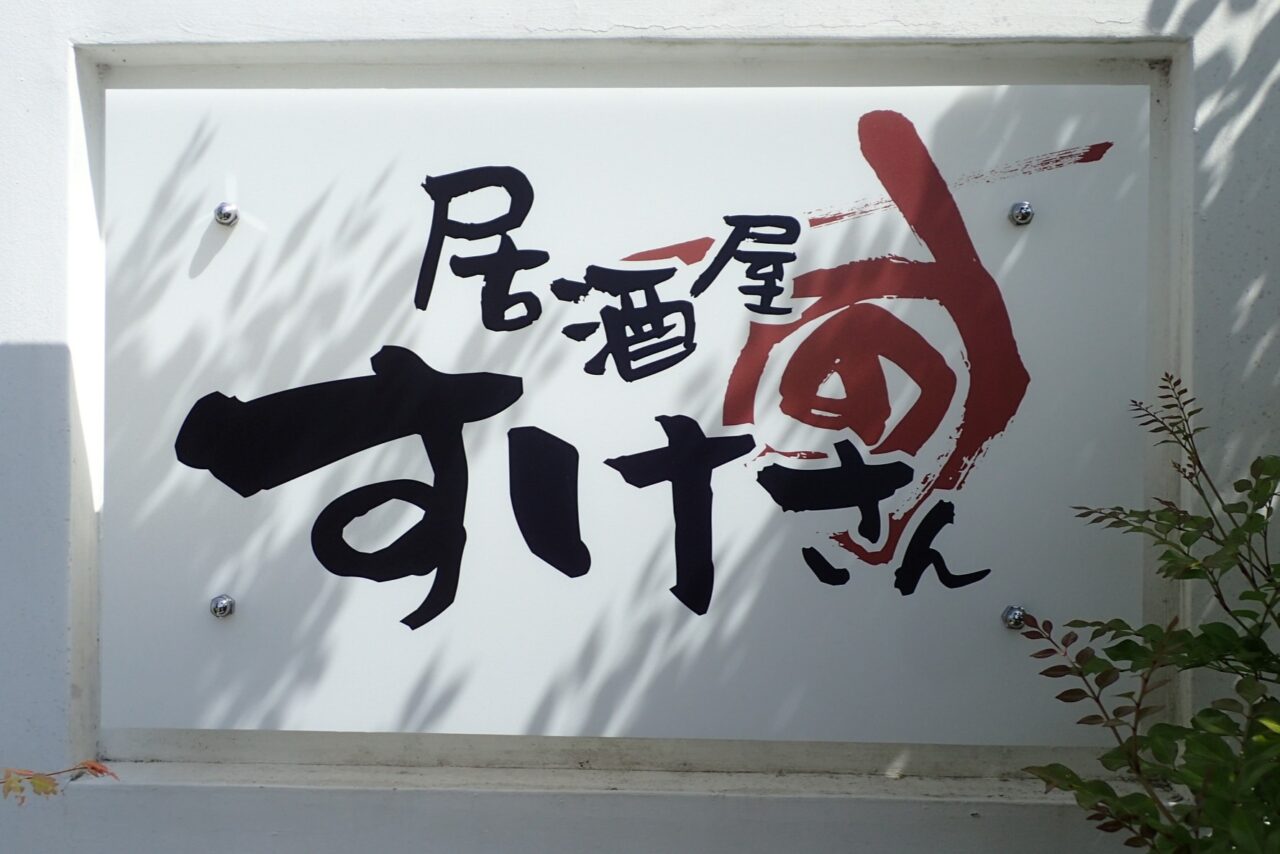 居酒屋
すけさん